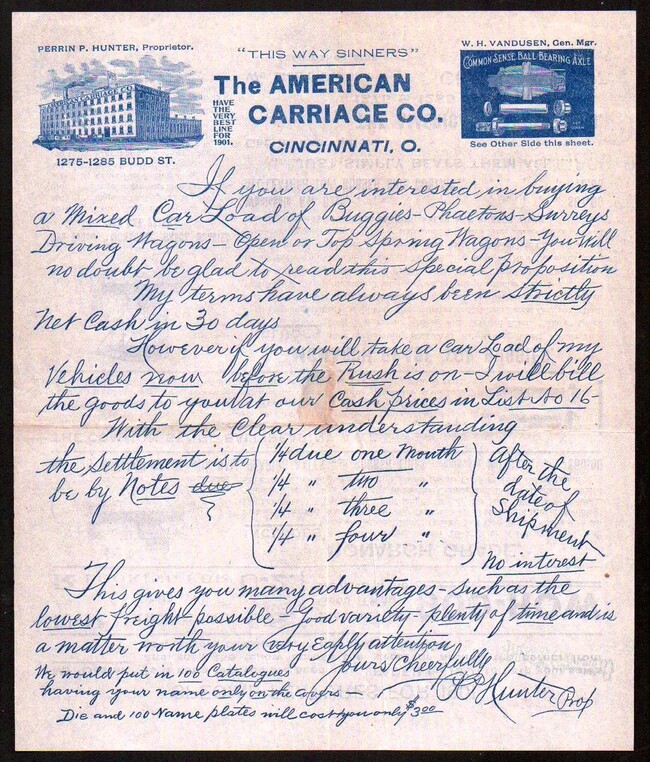 PERRIN P. HUNTER, Proprietor.
"THIS WAY SINNERS"
W. H. VANDUSEN, Gen. Mgr.
AMERICAN CARRIAGE CO.
COMMON SENSE BALL BEARING AXLE
The AMERICAN
CARRIAGE CO.
HAVE
THE
VERY
BEST
LINE
FOR
1901.
CINCINNATI, O.
1275-1285 BUDD ST.
See Other Side this sheet.
If you are interested in buying
a Mixed Car Load of Buggies - Phaetons - Surreys
Driving Wagons - Open or Top Spring Wagons - You will
no doubt be glad to read this special proposition
My terms have always been strictly
Net Cash in 30 days
However if you will take a Car Load of my
Vehicles now before the Rush is on - I will bill
the goods to you at our Cash prices in List No 16 -
With the Clear understanding
the settlement is to
be by Notes due
1/4 due one Month
1/4 " two "
1/4 " three "
1/4 " four "
After the
date of
Shipment
No interest
This gives you many advantages - such as the
lowest freight possible - Good variety - plenty of time and is
a matter worth your very Early attention
Yours Cheerfully
We would put in 100 Catalogues
having your name only on the covers -
PP Hunter Prop
Die and 100 Name plates will cost you only $3.00